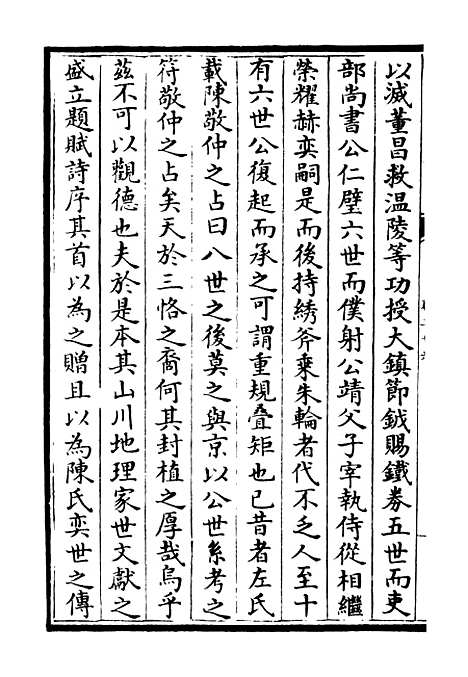 以滅董昌救温陵等功授大鎮節鉞賜鐵券五世而吏
部尚書公仁璧六世而僕射公靖父子宰執侍從相繼
榮耀赫奕嗣是而後持綉斧乘朱輪者代不乏人至十
有六世公復起而承之可謂重規疊矩也已昔者左氏
載陳敬仲之占曰八世之後莫之與京以公世系考之
符敬仲之占矣天於三恪之裔何其封植之厚哉烏乎
茲不可以觀德也夫於是本其山川地理家世文獻之
盛立題賦詩序其首以為之贈且以為陳氏奕世之傳